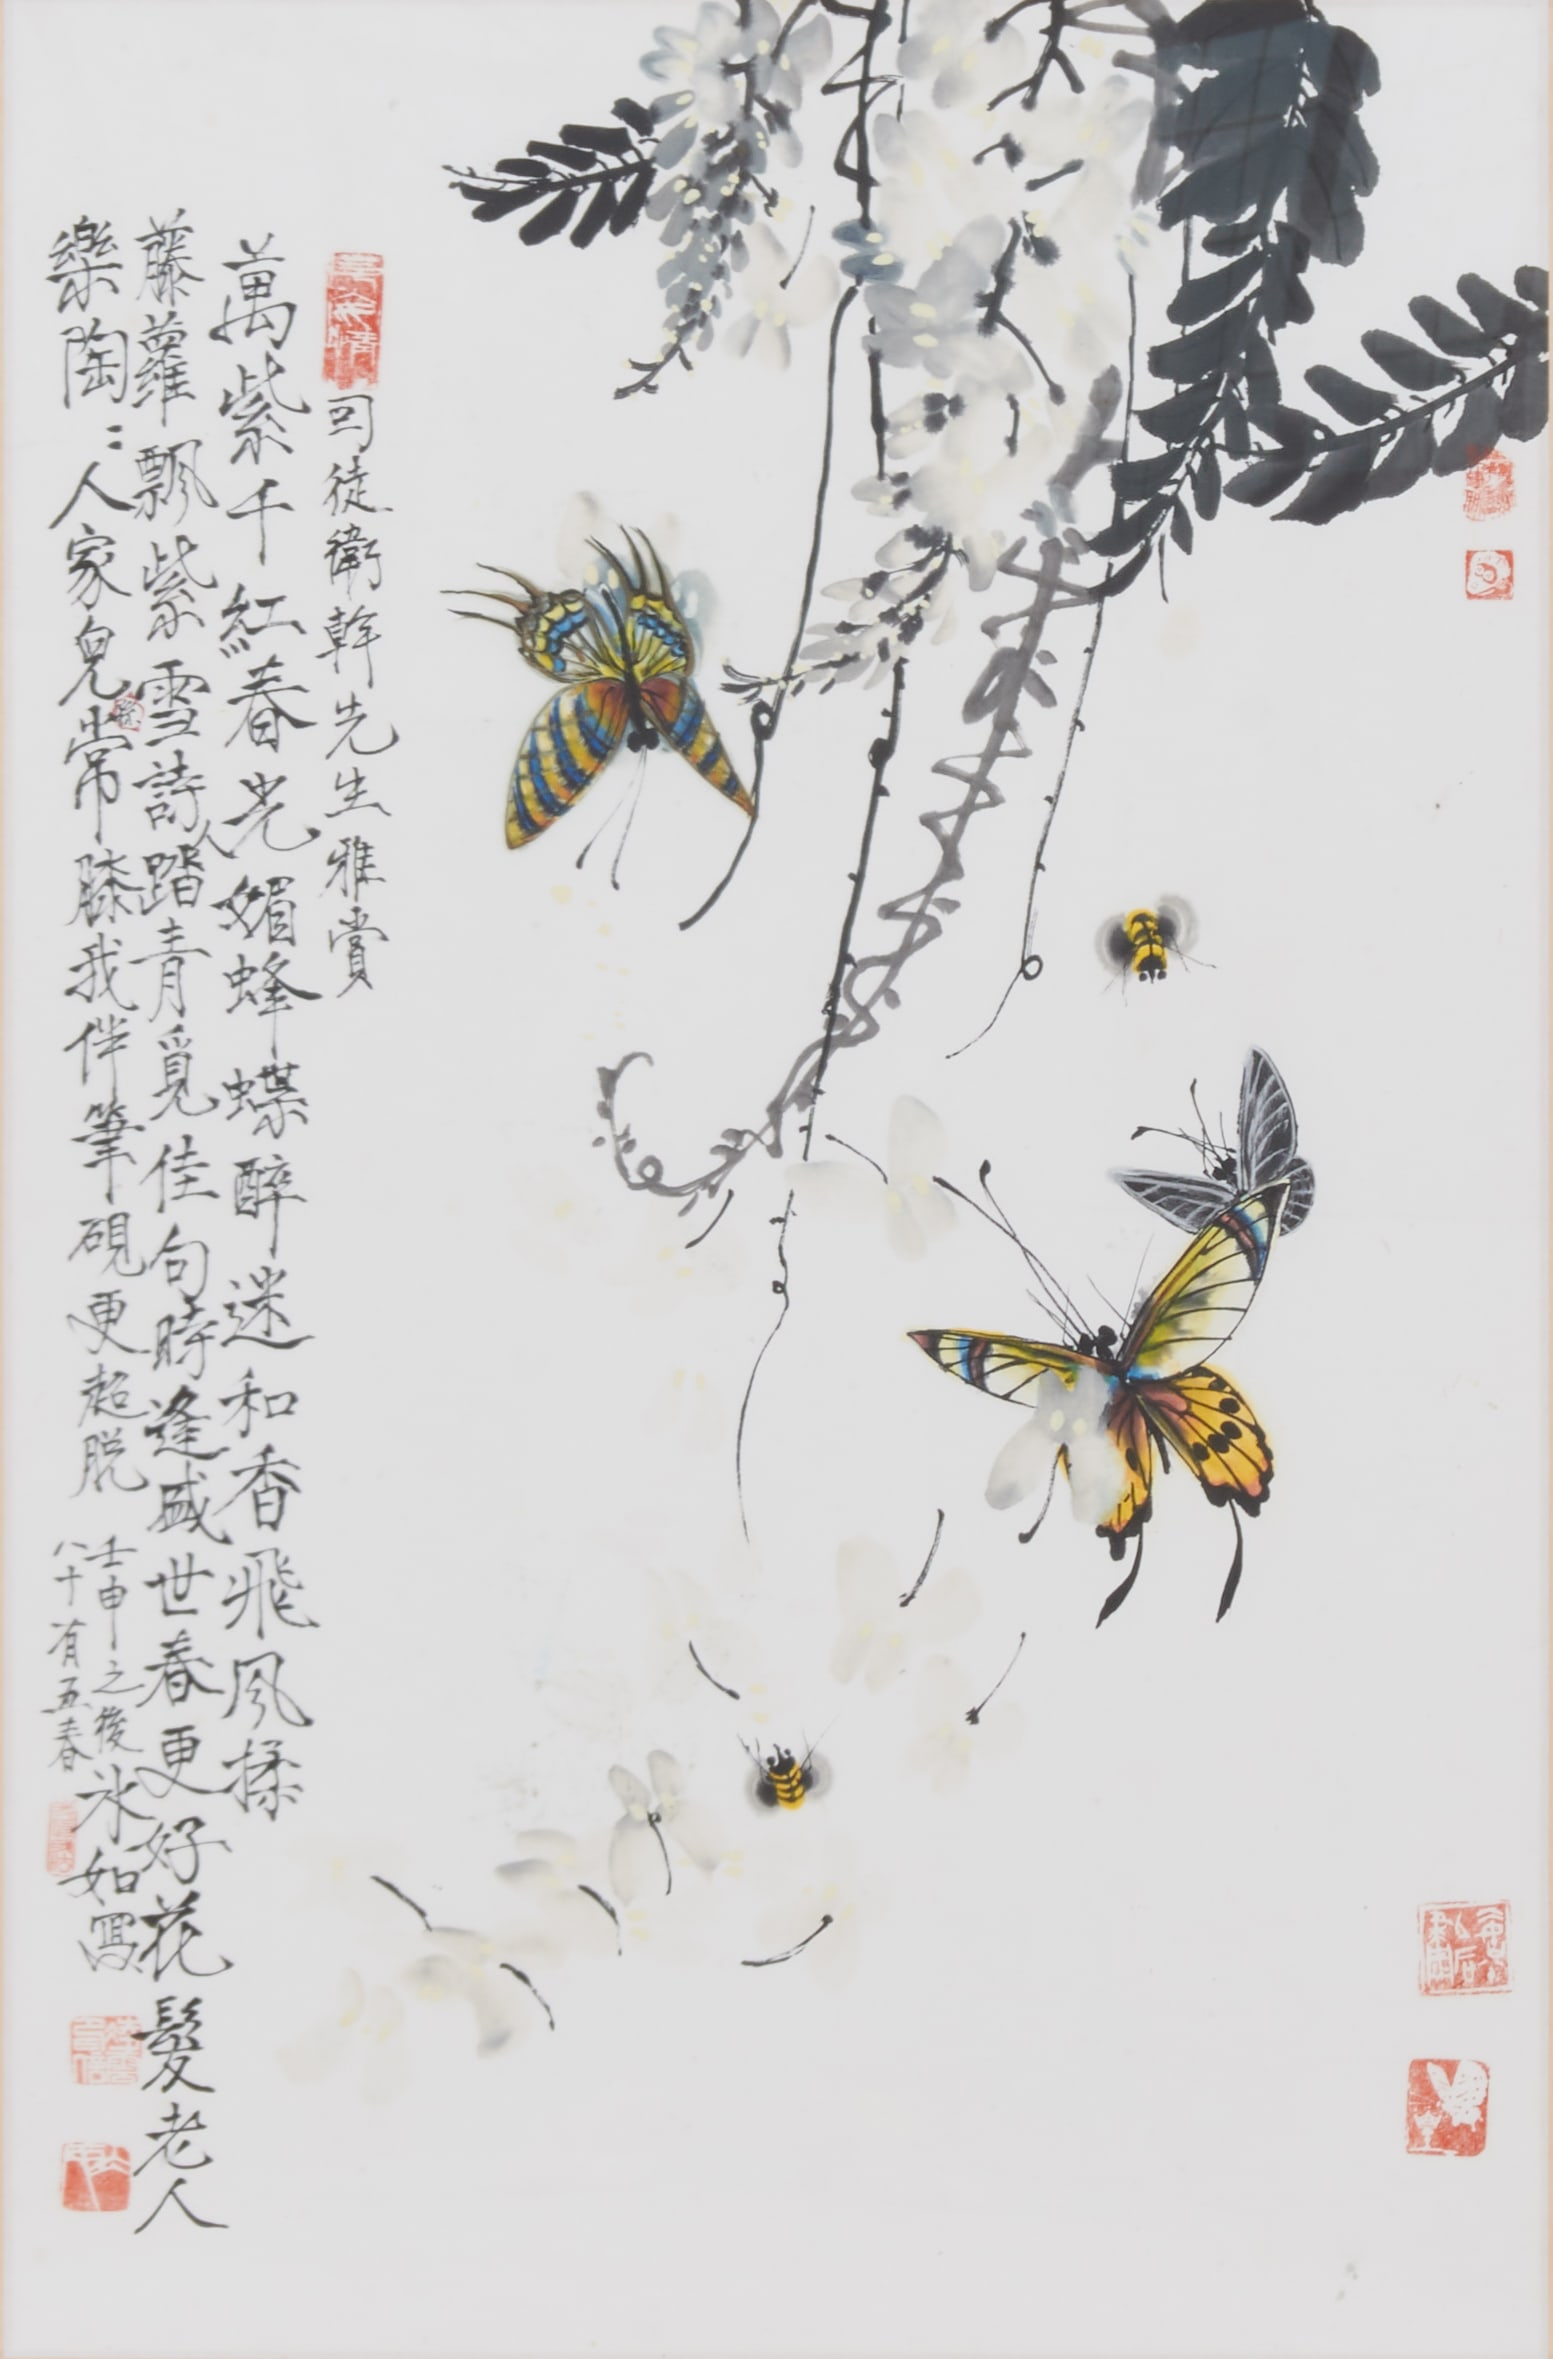 司徒衛幹先生雅賞
萬紫千紅春光媚蜂蝶醉迷和香飛風揉
藤蘿飄紫雪詩人踏青覓佳句時逢盛世春更好花髮老人
樂陶〻人家兒常膝我伴筆硯更超脱
壬申之後
八十有五春
冰如寫